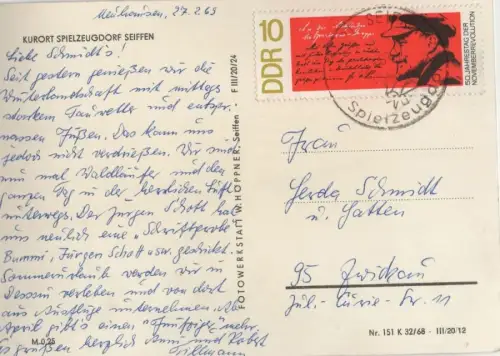 Neuhausen, 27.2.69
KURORT SPIELZEUGDORF SEIFFEN
Liebe Schmidt's!
Seit gestern genießen wir die
Winterlandschaft mit mittags
starkem Tauwetter und entspr.
nassen Füßen. Das kann uns
jedoch nicht verdrießen. Wir sind
nun mal Waldläufer und den
ganzen Tag in der herrlichen Luft
unterwegs. Der Jürgen Schott hat
uns neulich eine "Schriftprobe"
Bummi, Jürgen Schott usw. geschickt.
Sommerurlaub werden wir in
Dessau verleben und von dort
aus Ausflüge unternehmen. Ab
April gibt's einen mehr.
Es grüßen herzlich Anni und Robert
Tillmann
M 0,25
FOTOWERKSTATT W. HÖPPNER, Seiffen F III/20/24
DDR 10
50. JAHRESTAG DER
NOVEMBERREVOLUTION
Spielzeugdorf
Frau
Gerda Schmidt
u. Gatten
95 Zwickau
Jul.-Curie-Str. 11
Nr. 151 K 32/68 - III/20/12